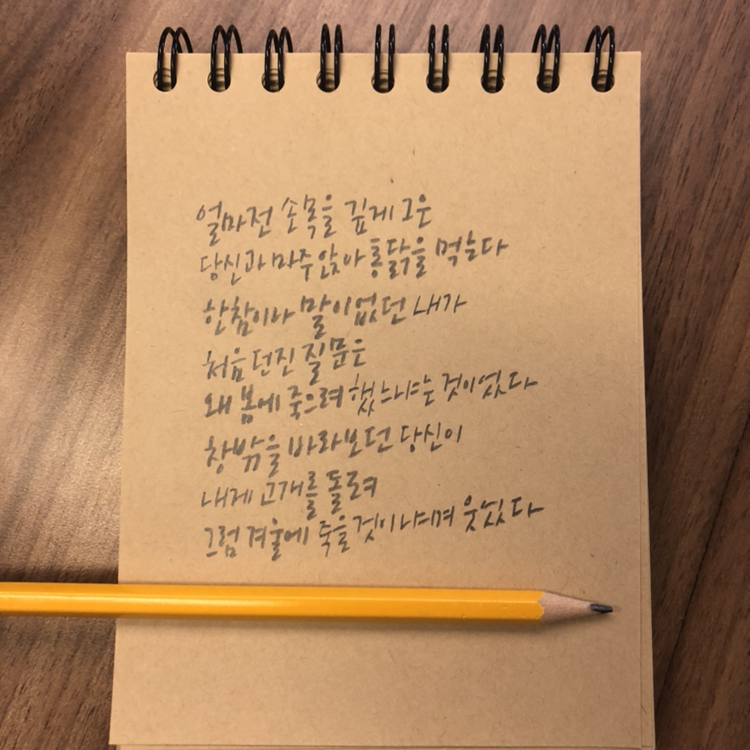 얼마전 손목을 깊게 그은
당신과 마주앉아 통닭을 먹는다
한참이나 말이 없던 내가
처음 던진 질문은
왜 봄에 죽으려 했느냐는 것이었다
창밖을 바라보던 당신이
내게 고개를 돌려
그럼 겨울에 죽을 것이냐며 웃었다